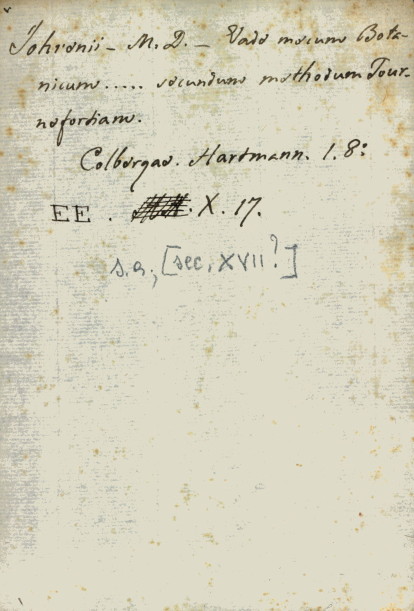 Johrenii - M. D. - Vade mecum Bota-
nicum ..... secundum methodum Tour-
nefortiam.
Colbergae. Hartmann. 1. 8:
EE . X. 17.
s. a., [sec. XVII?]